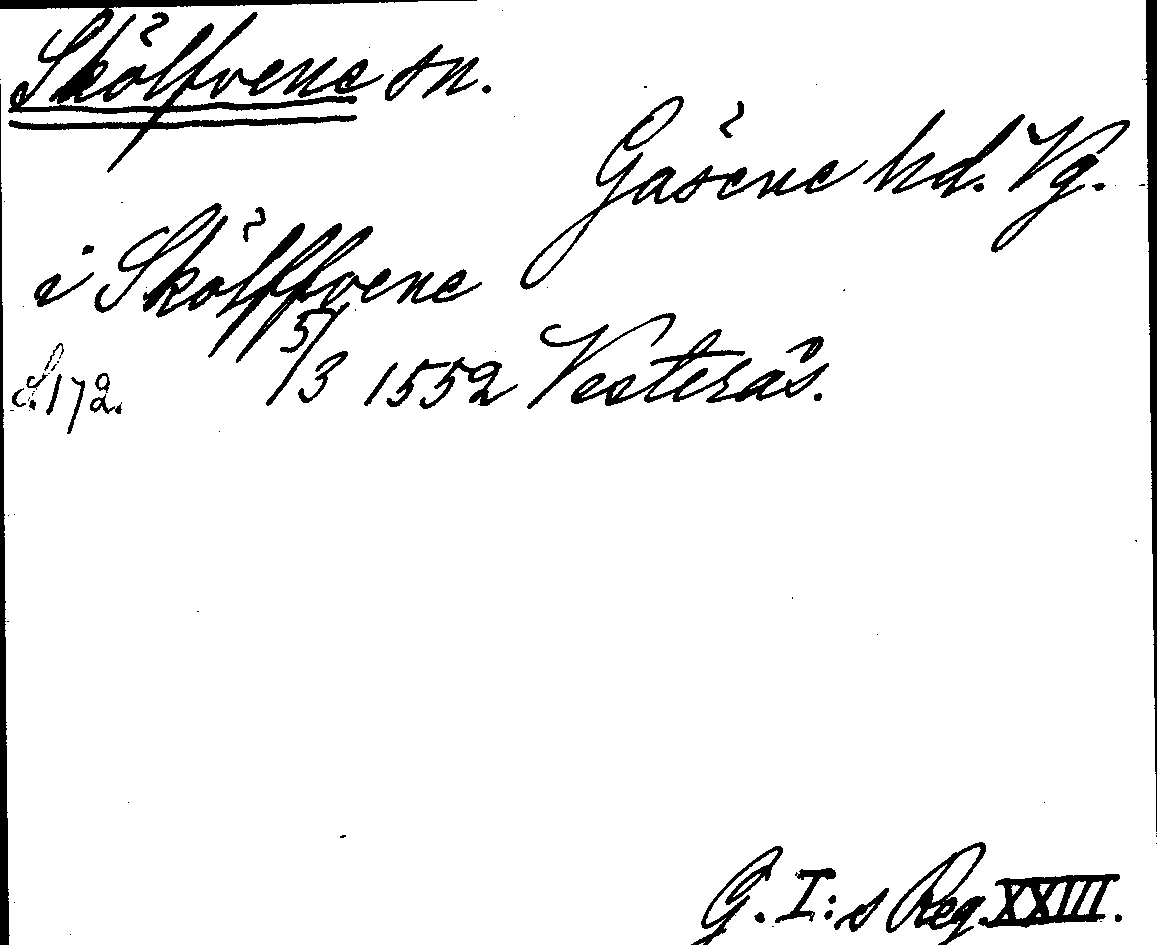 Skölfvene sn.
Gäsene hd. Vg.
i Skölffvene
S. 172. 5/3 1552 Vesterås.
G. I:s Reg. XXIII.